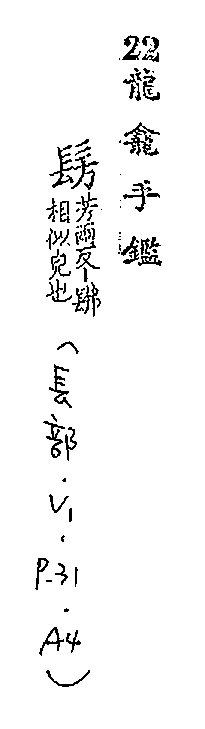 22龍龕手鑑
芳兩反下
相似皃也
(長部.V1.P.31.A4)